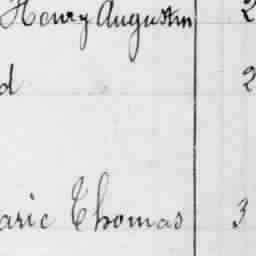 Henry Augustin 2
d 2
arie Thomas 3